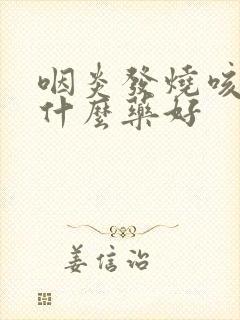 咽炎發燒咳
什麼藥好
姜信治